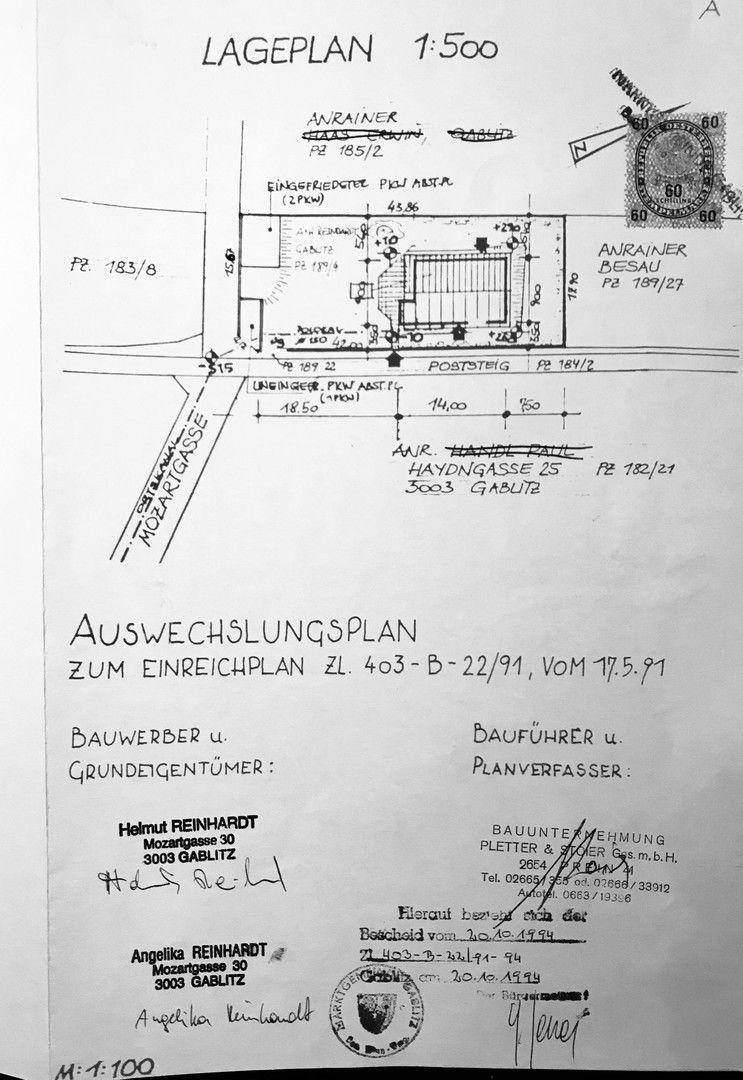 A
LAGEPLAN 1:500
ANRAINER
HAAS ERWIN, GABLITZ
PZ 185/2
60 60
60
SCHILLING
60 60
EINGEFRIEDETER PKW ABST.PL
(2PKW)
43.86
A+H REINHARDT
GABLITZ
PZ 189/4
+10
+210
ANRAINER
BESAU
PZ 189/27
PZ. 183/8
15.67
900
900
17.90
42.00
PZ 189 22
-315
POSTSTEIG PZ 184/2
UNEINGEFR. PKW ABST.PL
(1PKW)
18.50 14.00 750
ANR. HANDL PAUL
HAYDNGASSE 25 PZ 182/21
3003 GABLITZ
ORTSKANAL
MOZARTGASSE
AUSWECHSLUNGSPLAN
ZUM EINREICHPLAN ZL. 403-B-22/91, VOM 17.5.91
BAUWERBER u.
GRUNDEIGENTÜMER:
BAUFÜHRER u.
PLANVERFASSER:
Helmut REINHARDT
Mozartgasse 30
3003 GABLITZ
BAUUNTERNEHMUNG
PLETTER & STOIER Ges.m.b.H.
2654
Tel. 02665/355 od. 02666/33912
Autotel. 0663/19396
Hierauf bezieht sich der
Bescheid vom 20.10.1994
Zl 403-B-22/91-94
Gablitz am 20.10.1994
Der Bürgermeister
Angelika REINHARDT
Mozartgasse 30
3003 GABLITZ
Angelika Reinhardt
MARKTGEMEINDE GABLITZ
M:1:100